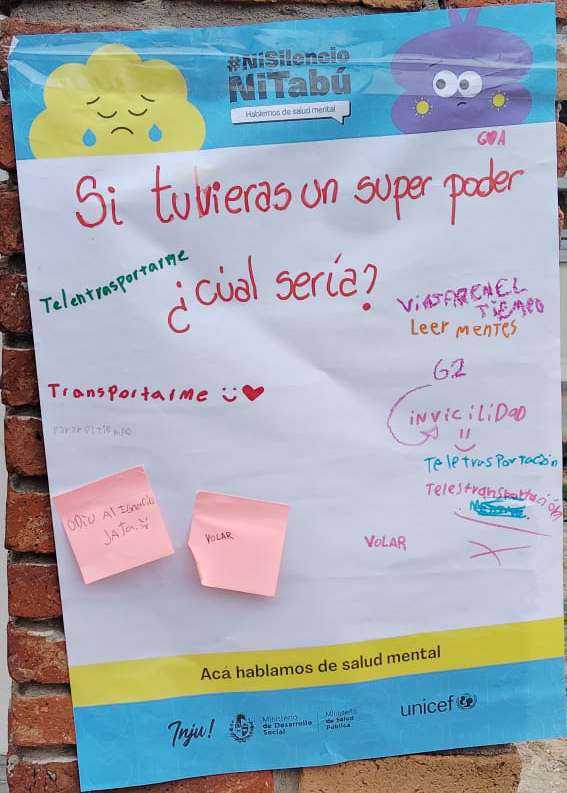 #NiSilencio
NiTabú
Hablemos de salud mental
G♥A
Si tuvieras un super poder
¿cúal sería?
Telentrasportarme
ViAJAR EN EL
TiEMPO
Leer menTes
Transportarme
G2
iNViCiLiDaD
parar el tiempo
TeletrasPorTación
Telestransportación
ODIO Al Ignacio
JAJA
VOLAR
VOLAR
Acá hablamos de salud mental
Inju!
Ministerio
de Desarrollo
Social
Ministerio
de Salud
Pública
unicef